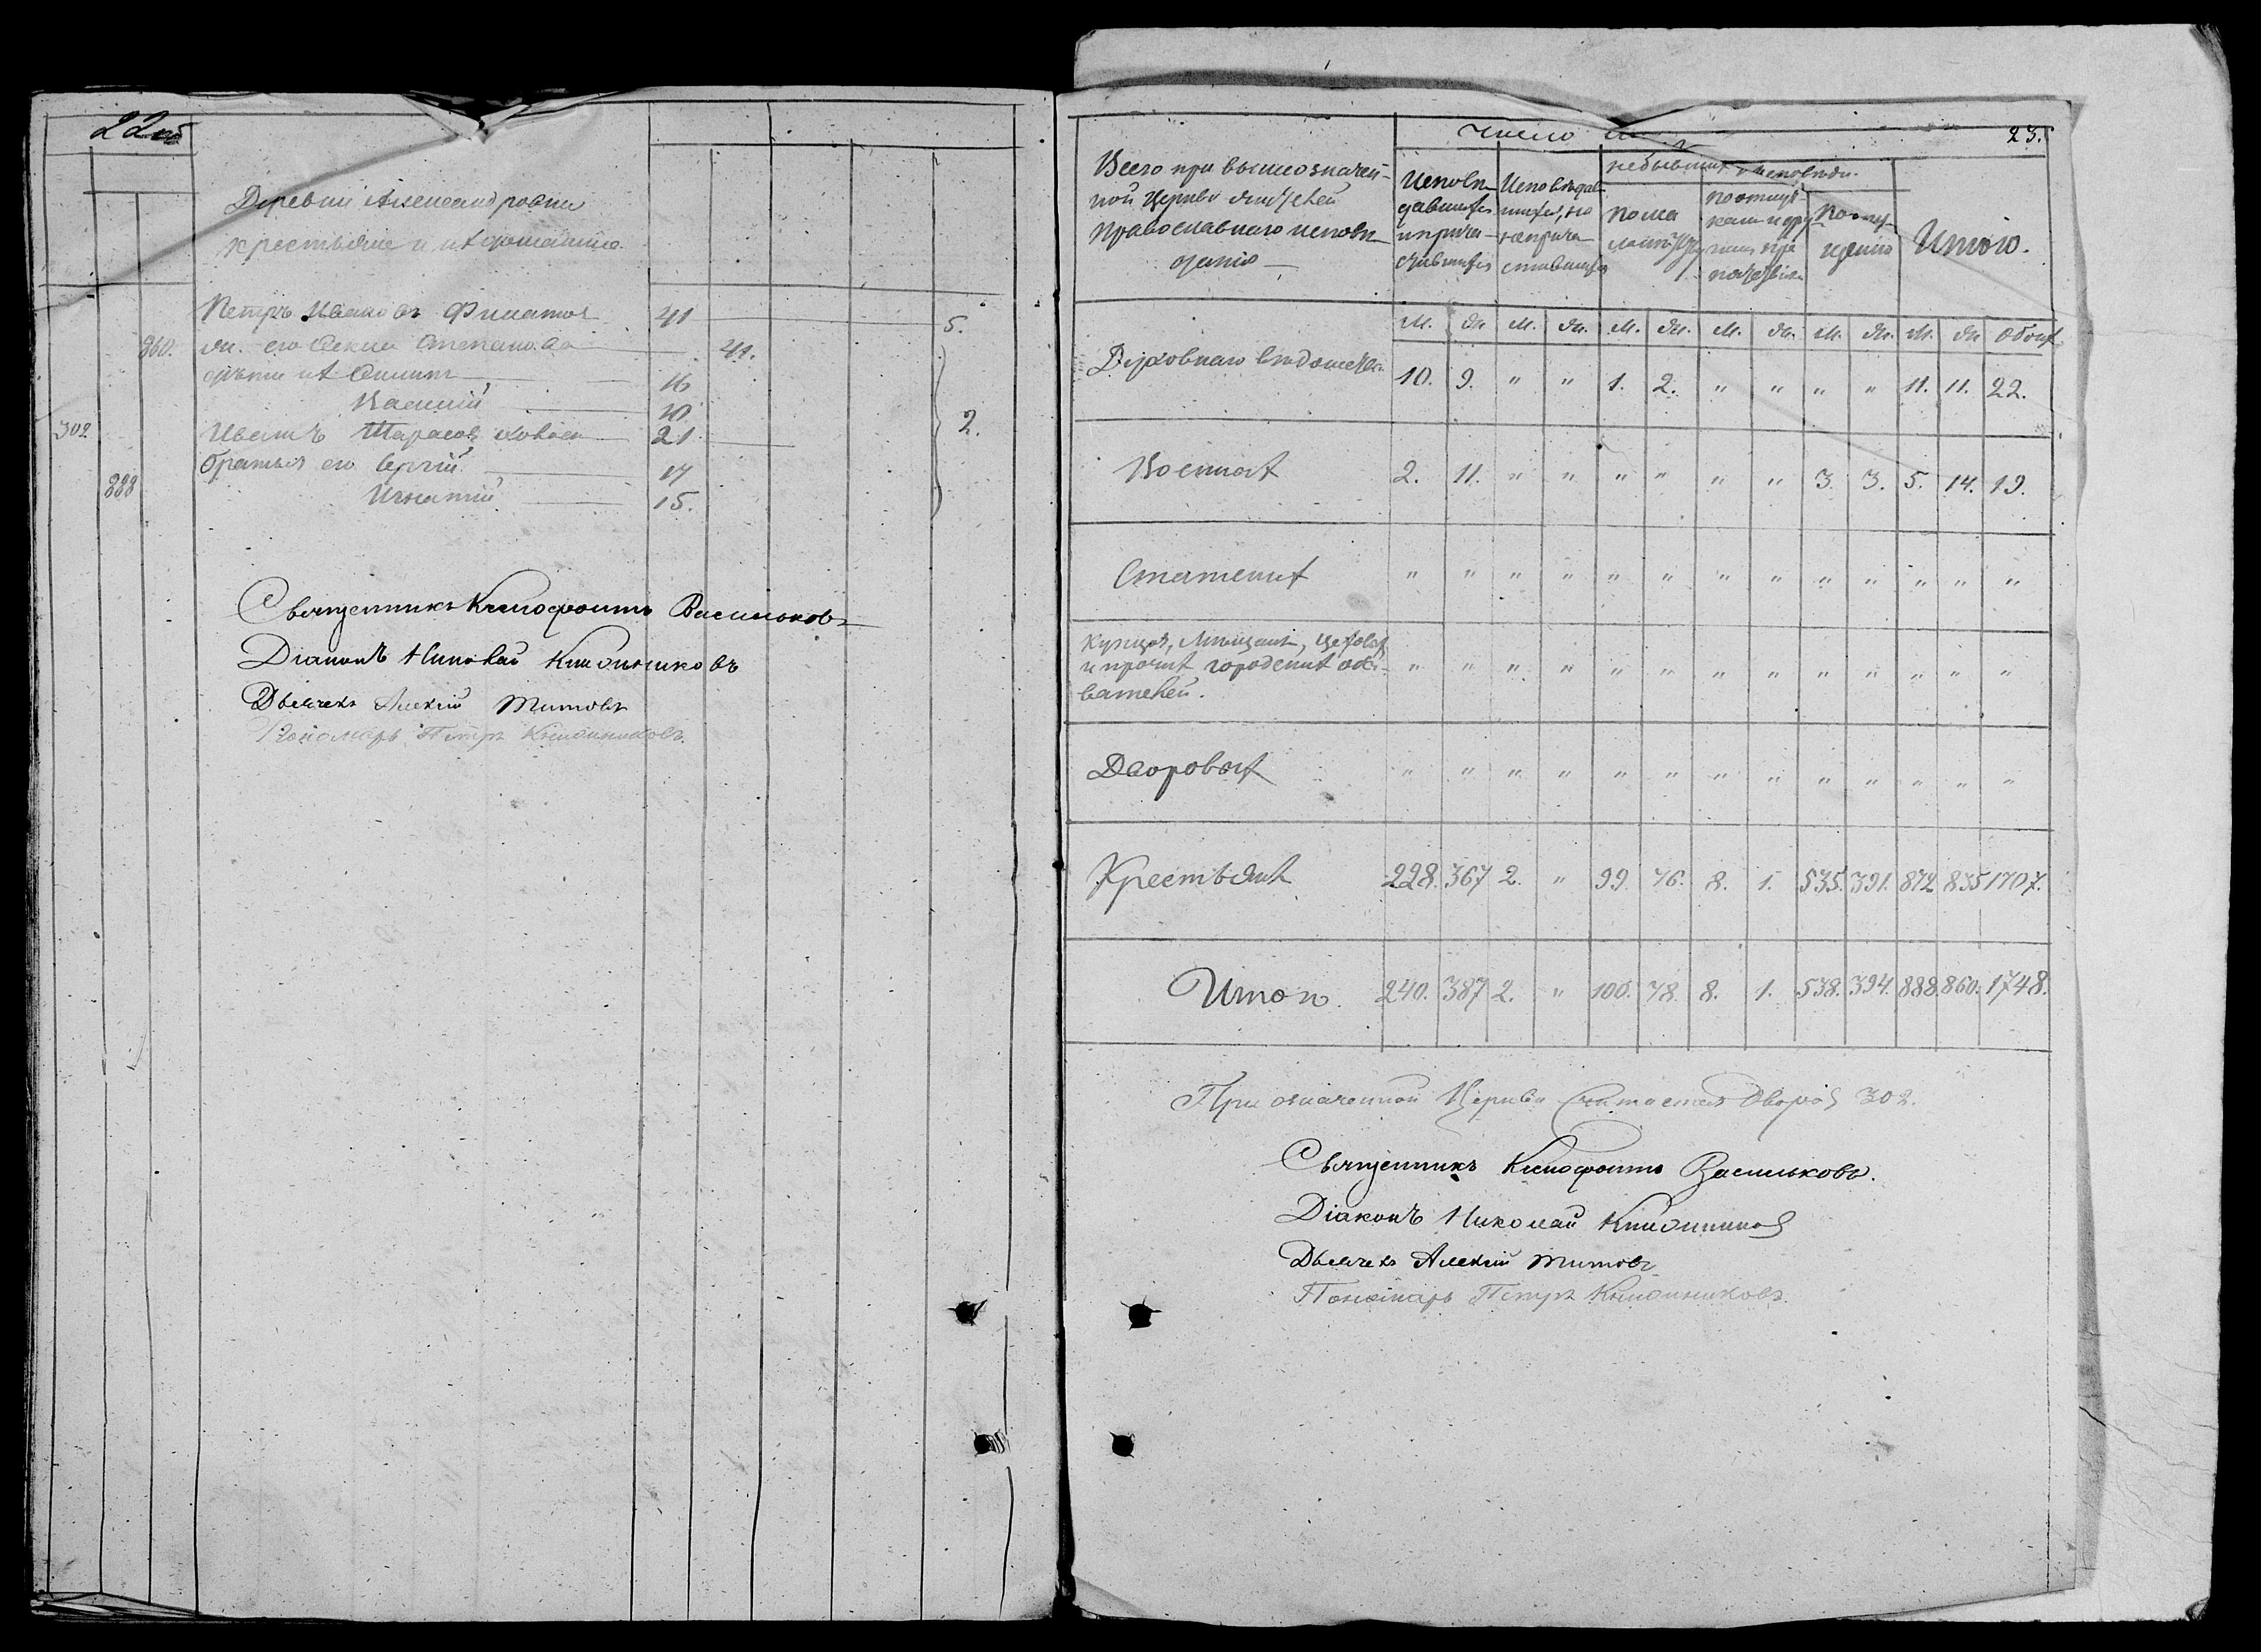 22об
Деревни Александровки
крестьяне и ихъ домашніе.
Петръ Ивановъ Филатов 41 5.
860. ж. его Степанова 41.
дѣти ихъ 16
Василій 10
302 Иванъ Тарасовъ 21 2.
братья его Сергій 17
888 Игнатій 15.
Священникъ Ксенофонтъ Васильковъ
Діаконъ Николай
Дьячекъ Алексій Титовъ
Пономарь Петръ
23.
Число
Всего при вышеозначен-
ной Церкви жителей
православнаго исповѣ-
данія
Исповѣ-
давшихся
и прича-
стившихся
Исповѣдав-
шихся, но
неприча-
стившихся
небывшихъ у исповѣди.
по мало
по отлуч-
камъ и дру-
по опу-
щенію
Итого.
м. ж. м. ж. м. ж. м. ж. м. ж. м. ж. обоих
Духовнаго вѣдомства 10. 9. " " 1. 2. " " " " 11. 11. 22.
Военныхъ 2. 11. " " " " " " 3. 3. 5. 14. 19.
Статскихъ " " " " " " " " " " " " "
Купцовъ, Мѣщанъ, Цеховыхъ
и прочихъ городскихъ обы- " " " " " " " " " " " " "
вателей.
Дворовыхъ " " " " " " " " " " " " "
Крестьянъ 228. 367 2. " 99. 76. 8. 1. 535. 391. 872 835 1707.
Итого 240. 387 2. " 100. 78. 8. 1. 538. 394. 888. 860. 1748.
При означенной Церкви считается дворовъ 302.
Священникъ Ксенофонтъ Васильковъ.
Діаконъ Николай
Дьячекъ Алексій Титовъ
Пономарь Петръ